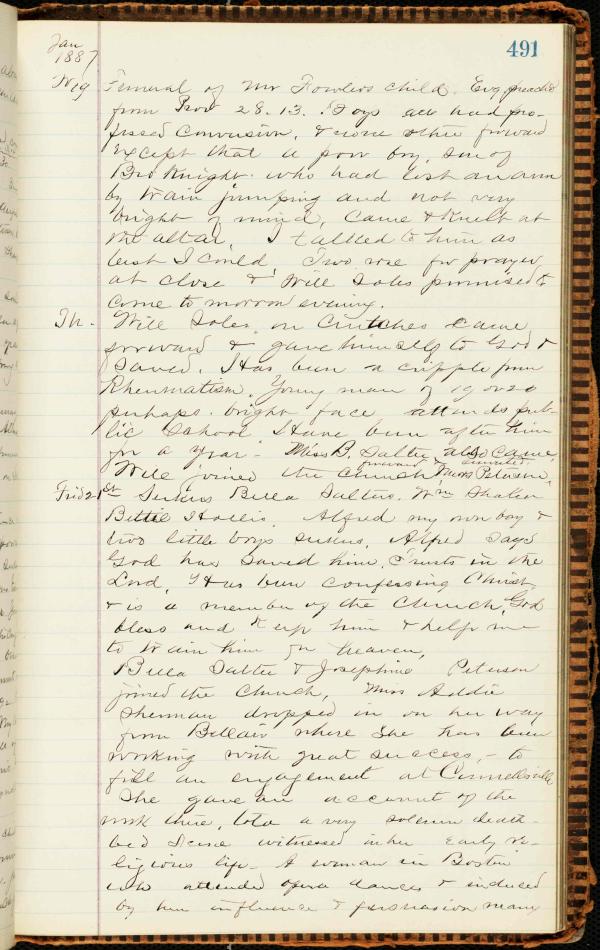 491
Jan
1887
W 19 Funeral of Mr Fowlers child. Evg preached
from Prov 28.13. Boys all had pro-
fessed conversion, & none other forward
except that a poor boy, son of
Bro Knight who had lost an arm
by train jumping and not very
bright of mind, came & knelt at
the altar, I talked to him as
best I could. Two rose for prayer
at close & Will Soles promised to
come to morrow evening.
Th. Will Soles on crutches came
forward & gave himself to God &
saved. Has been a cripple from
Rheumatism. Young man of 19 or 20
perhaps. bright face attends pub-
lic school. Have been after him
for a year - Miss B. Salter also came
forward
Will joined the church Miss Peterson
Frid 21st Seekers Bella Salters. Wm Shaler
Bettie Hollis. Alfred my own boy &
two little boys seekers. Alfred says
God has saved him, trusts in the
Lord, Has been confessing Christ
& is a member of the Church, God
bless and keep him & help me
to train him for heaven,
Bella Salter & Josephine Peterson
joined the Church, Miss Addie
Sherman dropped in on her way
from Bellair where she has been
working with great success, - to
fill an engagement at Connellsville
She gave an account of the
work there, told a very solemn death-
bed scene witnessed in her early re-
ligious life - A woman in Boston
who attended opera dances & induced
by her influence & persuasion many